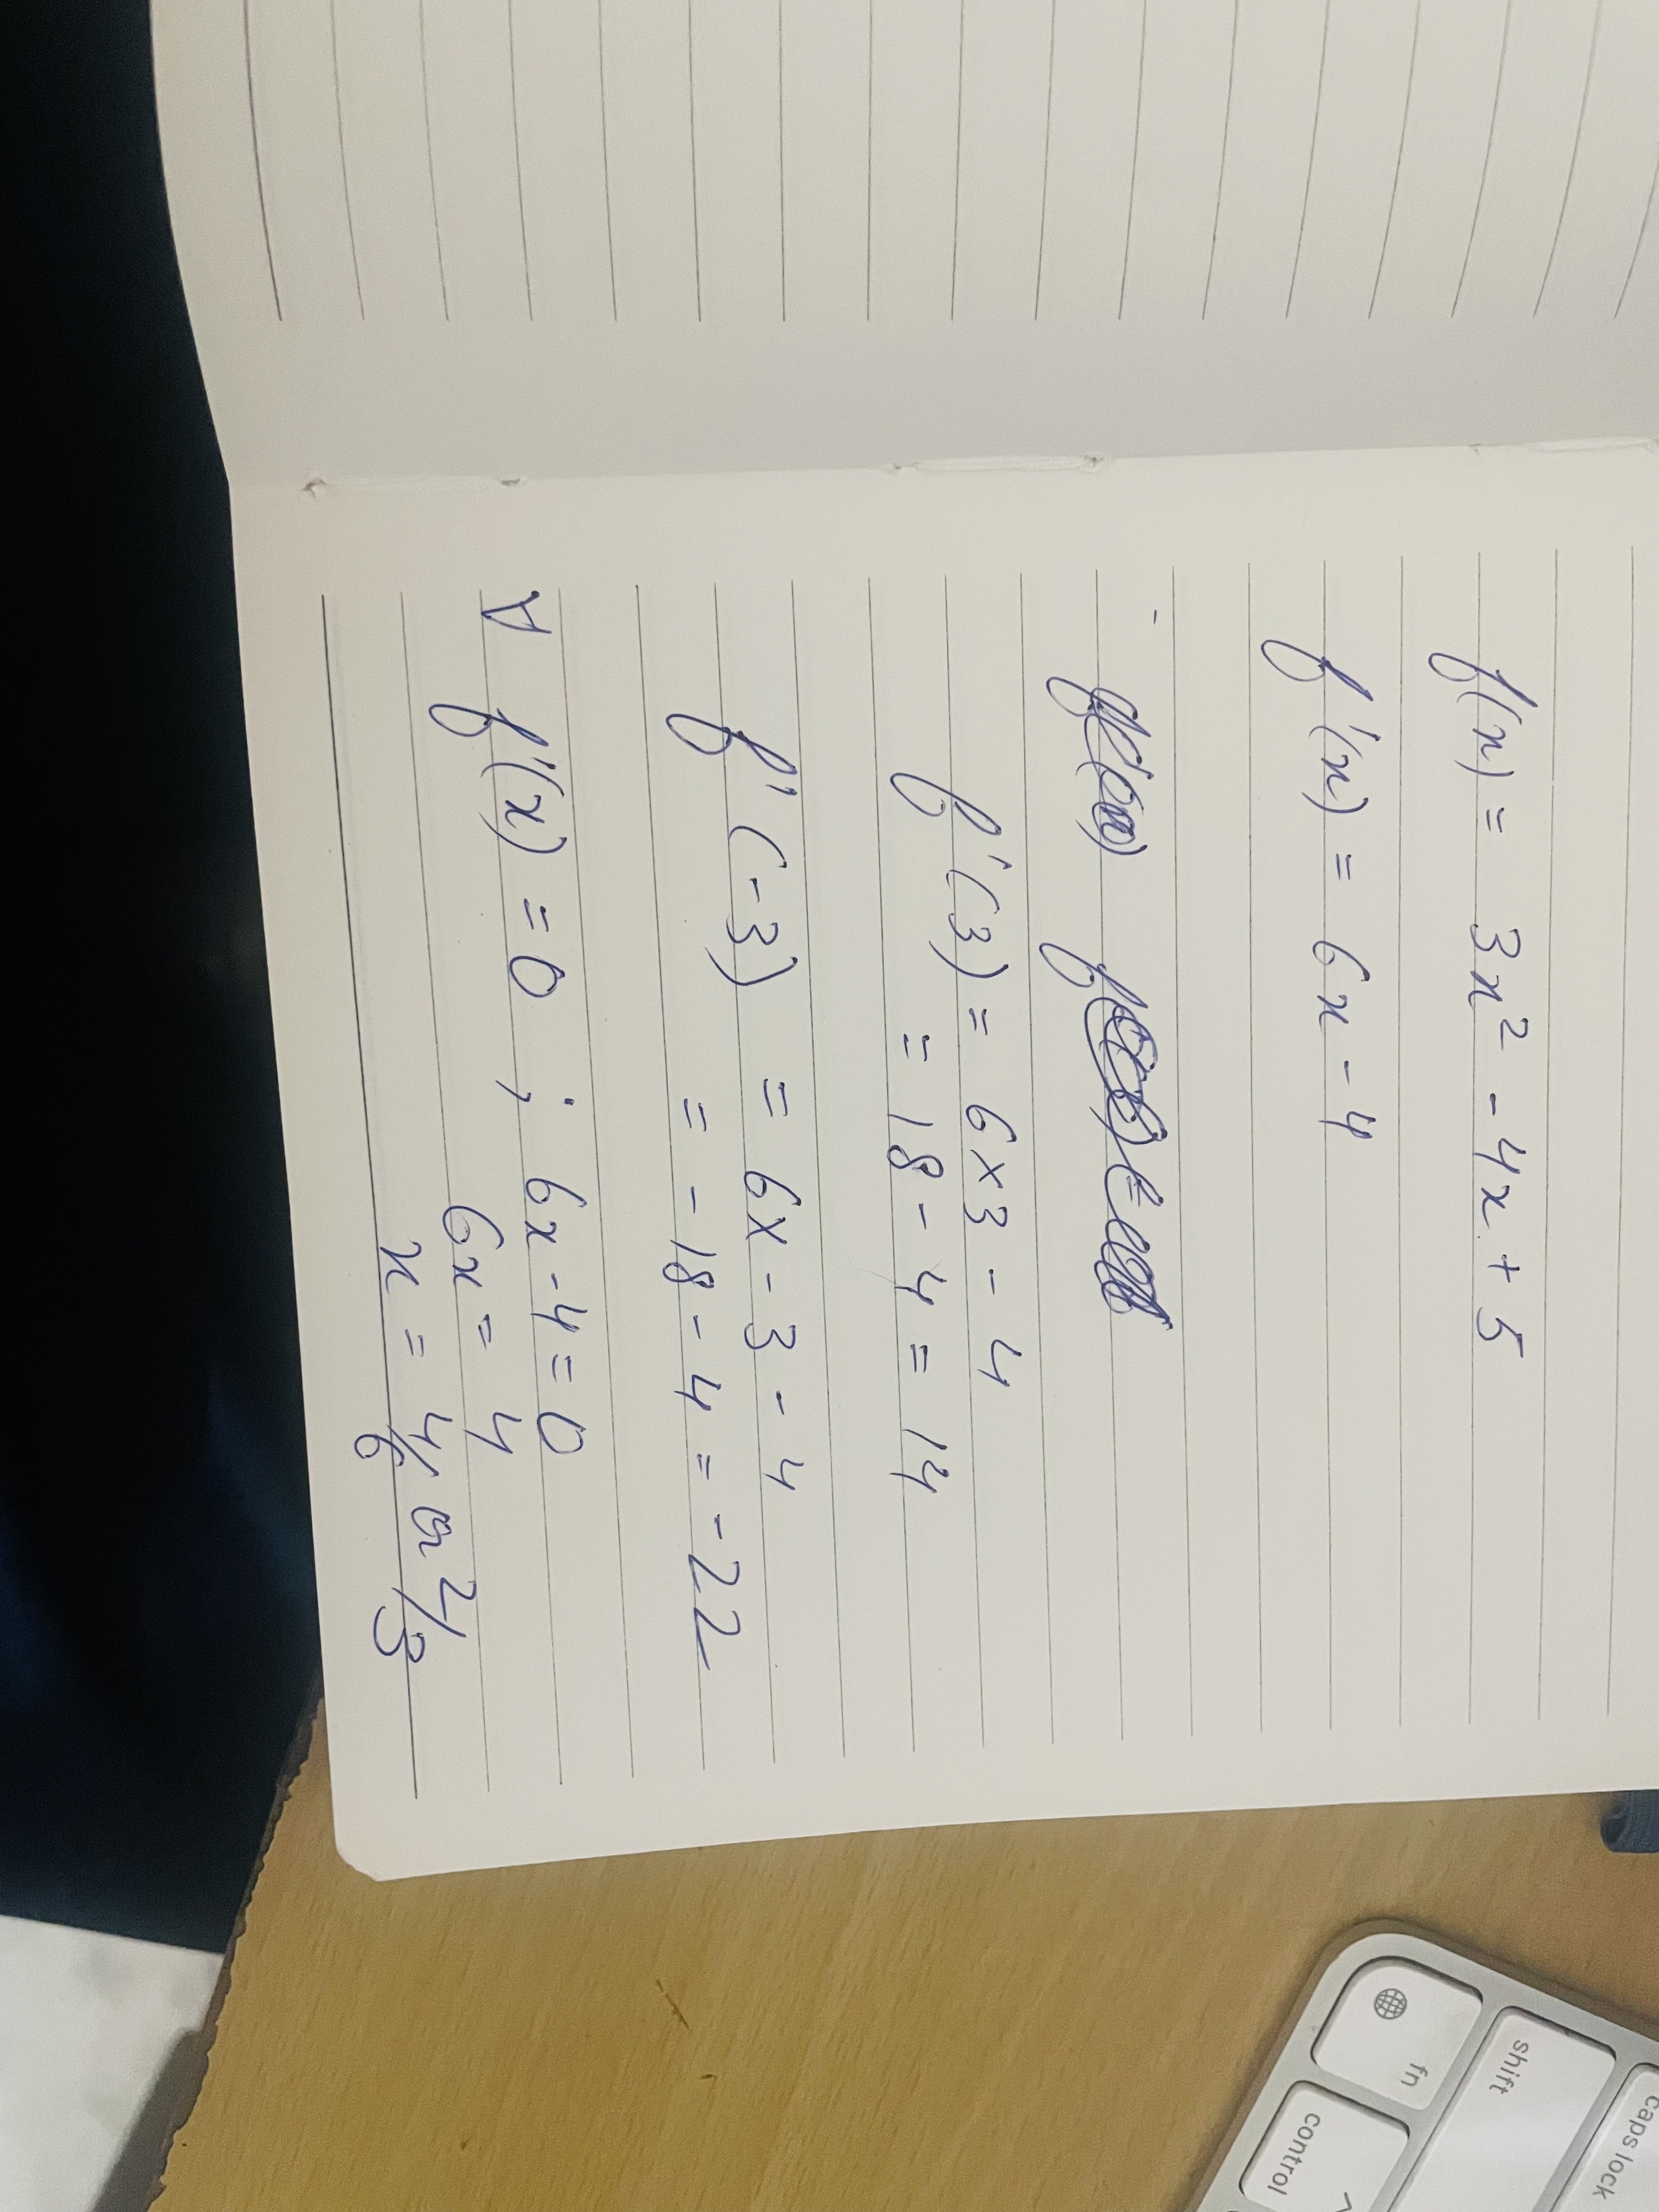 f(x) = 3x² - 4x + 5
f'(x) = 6x - 4
f'(3) = 6×3 - 4
= 18 - 4 = 14
f'(-3) = 6× - 3 - 4
= - 18 - 4 = -22
∀ f'(x) = 0 ; 6x - 4 = 0
6x = 4
x = 4/6 or 2/3
caps lock
shift
fn
control